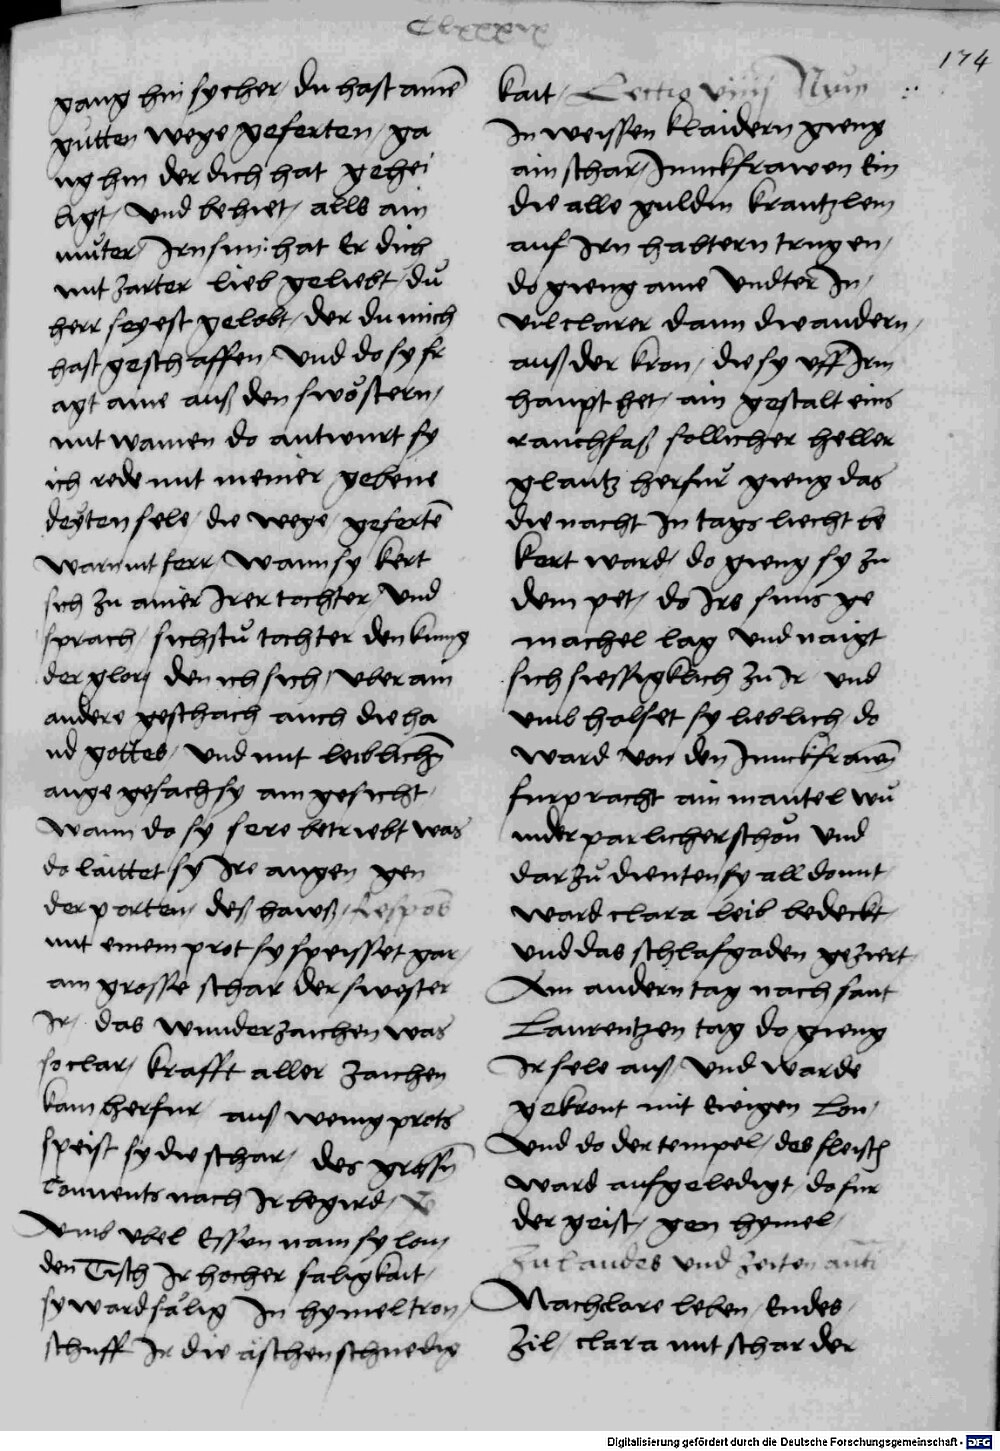 Clxxxix
174
gang hin sycher / du hast amē
gutten wege geferten / ga
ng hin der dich hat gehei
ligt / und behiet / alls ain
muter Irn sun hat Er dich
mit zarter lieb geliebt / du
herr seyest gelobt / der du mich
hast geschaffen Und do sy fr
agt aine auß den swöstern /
mit wamen do antwurt sy
ich rede mit meiner gebene
deyten sele / die wege / gefertē
warn nit ferr / Wann sy kert
sich zu ainer Irer tochter / Und
sprach / sichstu tochter den kunig
der glori den ich sich / uber ain
andere geschach auch die ha
nd gottes / Und mit leiblichē
auge gesach sy ain gesicht /
Wann do sy sere betriebt was
do laittet sy Ire augen gen
der porten / deß hawß / Respōs
mit einem prot sy speisset gar /
ain grosse schar der swester
Ir / das wunderzaichen was
so clar / krafft aller zaichen
kam herfur auß wenig prots
speist sy die schar / des grossn̄
Convents nach Ir begird /
Umb ubel Essen nam sy lon /
den Tisch Ir hocher saligkait /
sy ward sälig In hymel tron /
schuff Ir die äschen schnedig
kait / Lectio viiij Nun
In weissen klaidern gieng
ain schar / Junckfrawen Ein
die alle guldin krantzlein
auf Irn habtern trugen /
do gieng aine Undter In /
vil clarer dann die andern /
auß der kron / die sy uff Irm
haupt het / ain gestalt eins
rauchfaß sollicher heller
glantz herfur gieng das
die nacht In tags liecht be
kert ward / do gieng sy zu
dem pet / do Irs suns ge
machel lag Und naigt
sich siessigklich zu Ir Und
umb halset sy lieblich / do
ward von den Junckfrawē
furpracht ain mantel wu
nderparlicher schon Und
darzu dienten sy all domit /
ward clara leib bedeckt /
Und das schlafgaden geziert /
Am andern tag nach sant
Laurentzen tag do gieng
Ir sele auß / Und warde
gekront mit Ewigen Lon /
Und do der tempel / des fleisch
ward aufgeledigt / do fur
der geist / gen hymel /
Zu laudes Und Zeiten anti
Nach clare leben / Endes /
Zil / clara mit schar der
Digitalisierung gefördert durch die Deutsche Forschungsgemeinschaft - DFG